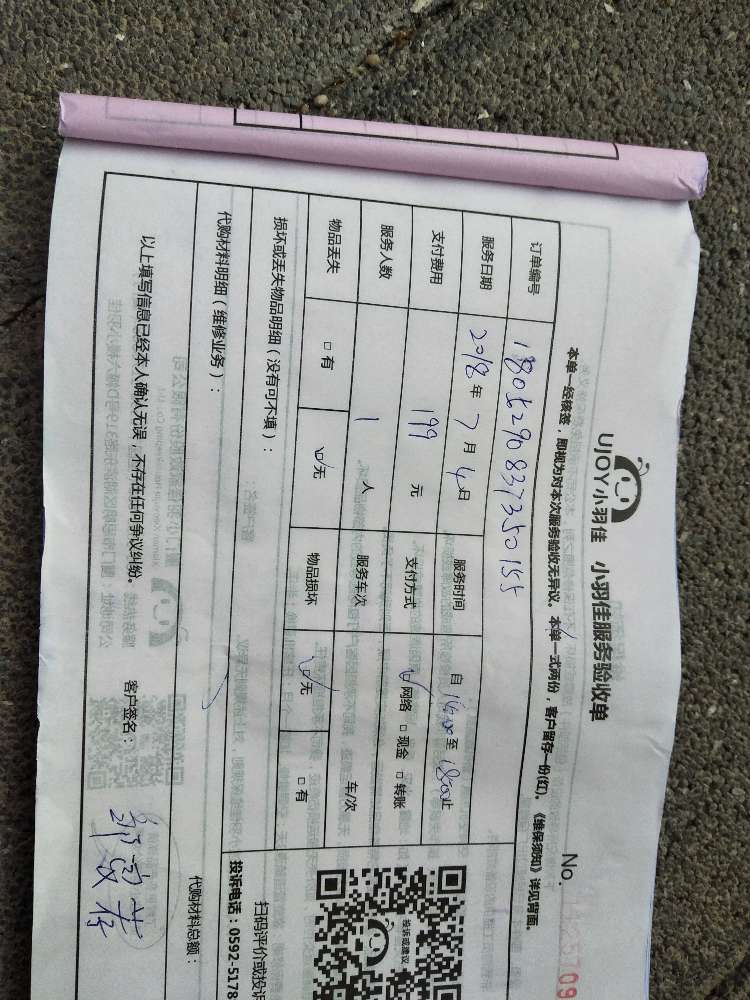 UJOY小羽佳 小羽佳服务验收单
No. 25709
本单一经核签，即视为对本次服务验收无异议。本单一式两份，客户留存一份(红)。《维保须知》详见背面。
订单编号 1805290837350155
服务日期 2018年7月4日 服务时间 自14:00至18:00止
支付费用 199 元 支付方式 ☑网络 □现金 □转账
服务人数 1 人 服务车次 车/次
物品丢失 □有 ☑无 物品损坏 ☑无 □有
损坏或丢失物品明细（没有可不填）：
代购材料明细（维修业务）：
代购材料总额：
以上填写信息已经本人确认无误，不存在任何争议纠纷。 客户签名：
投诉或建议
扫码评价或投诉
投诉电话：0592-5178